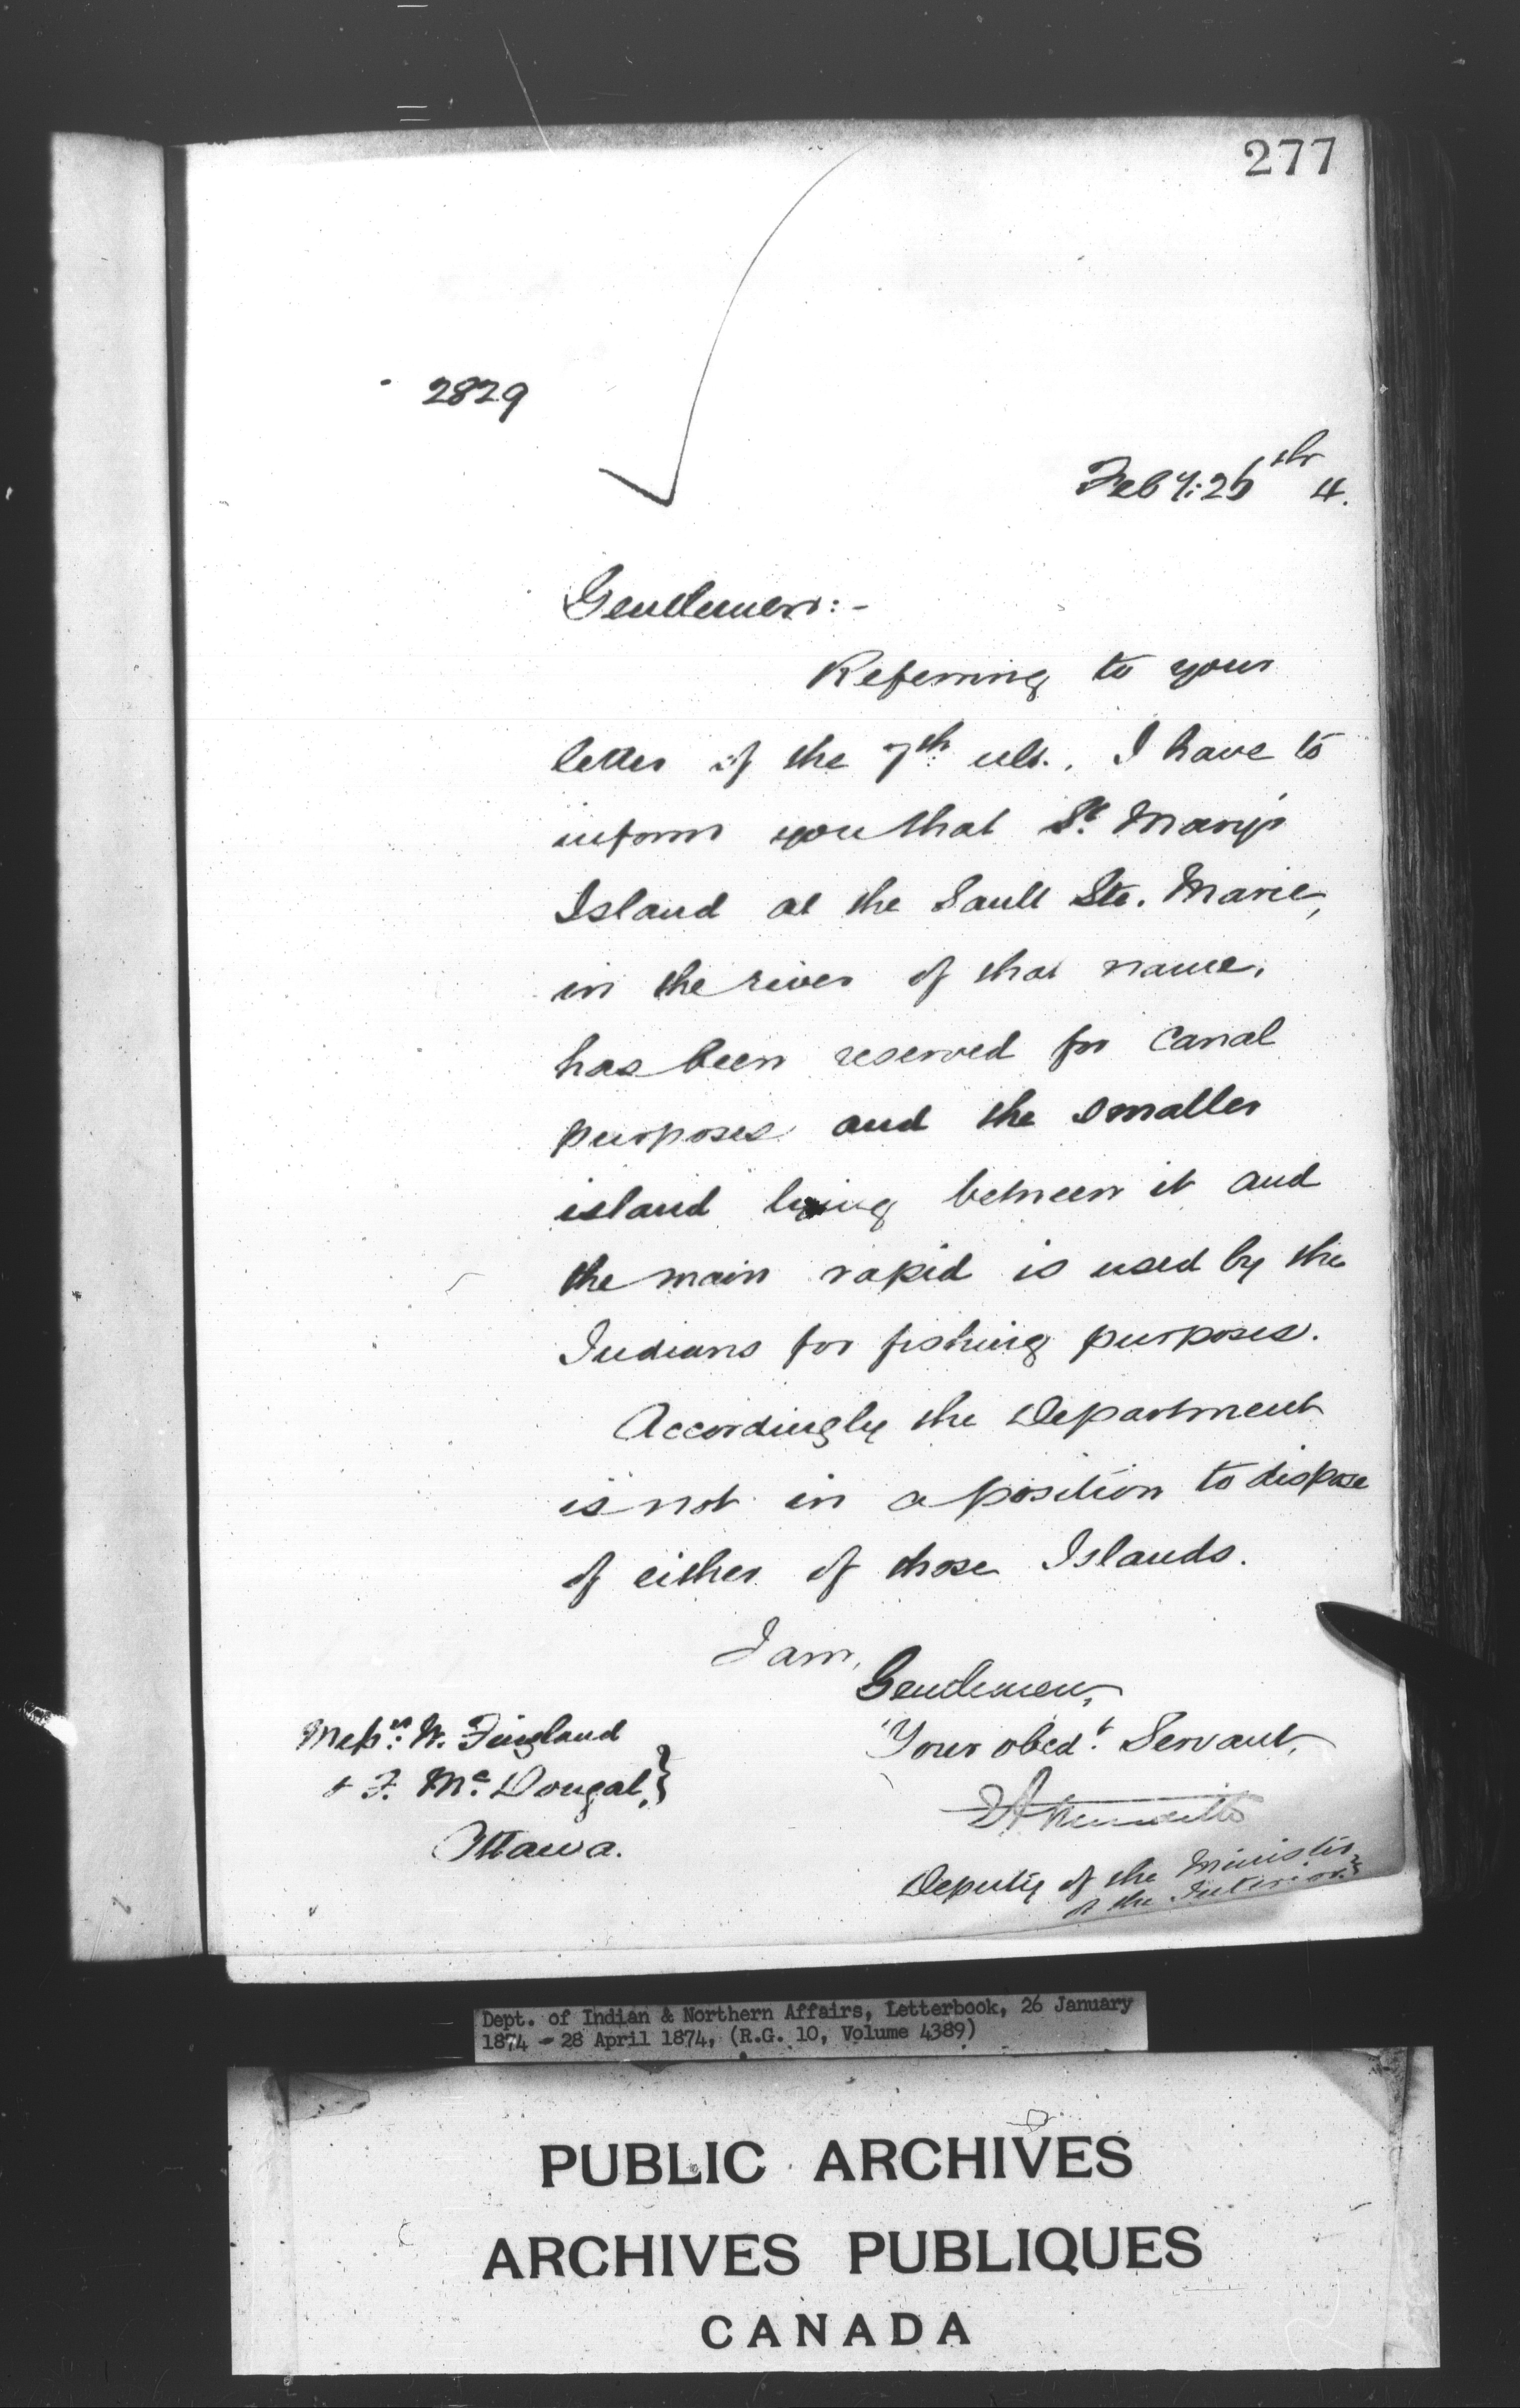 277
2829
Feby: 25th 4.
Gentlemen:-
Referring to your
letter of the 7th ult., I have to
inform you that St. Mary's
Island at the Sault Ste. Marie,
in the river of that name,
has been reserved for Canal
purposes and the smaller
island lying between it and
the main rapid is used by the
Indians for fishing purposes.
Accordingly the Department
is not in a position to dispose
of either of those Islands.
I am,
Gentlemen,
Your obedt. Servant,
Deputy of the Minister
of the Interior.
Messrs. W. Fingland
& F. McDougal,}
Ottawa.
Dept. of Indian & Northern Affairs, Letterbook, 26 January
1874 - 28 April 1874, (R.G. 10, Volume 4389)
PUBLIC ARCHIVES
ARCHIVES PUBLIQUES
CANADA